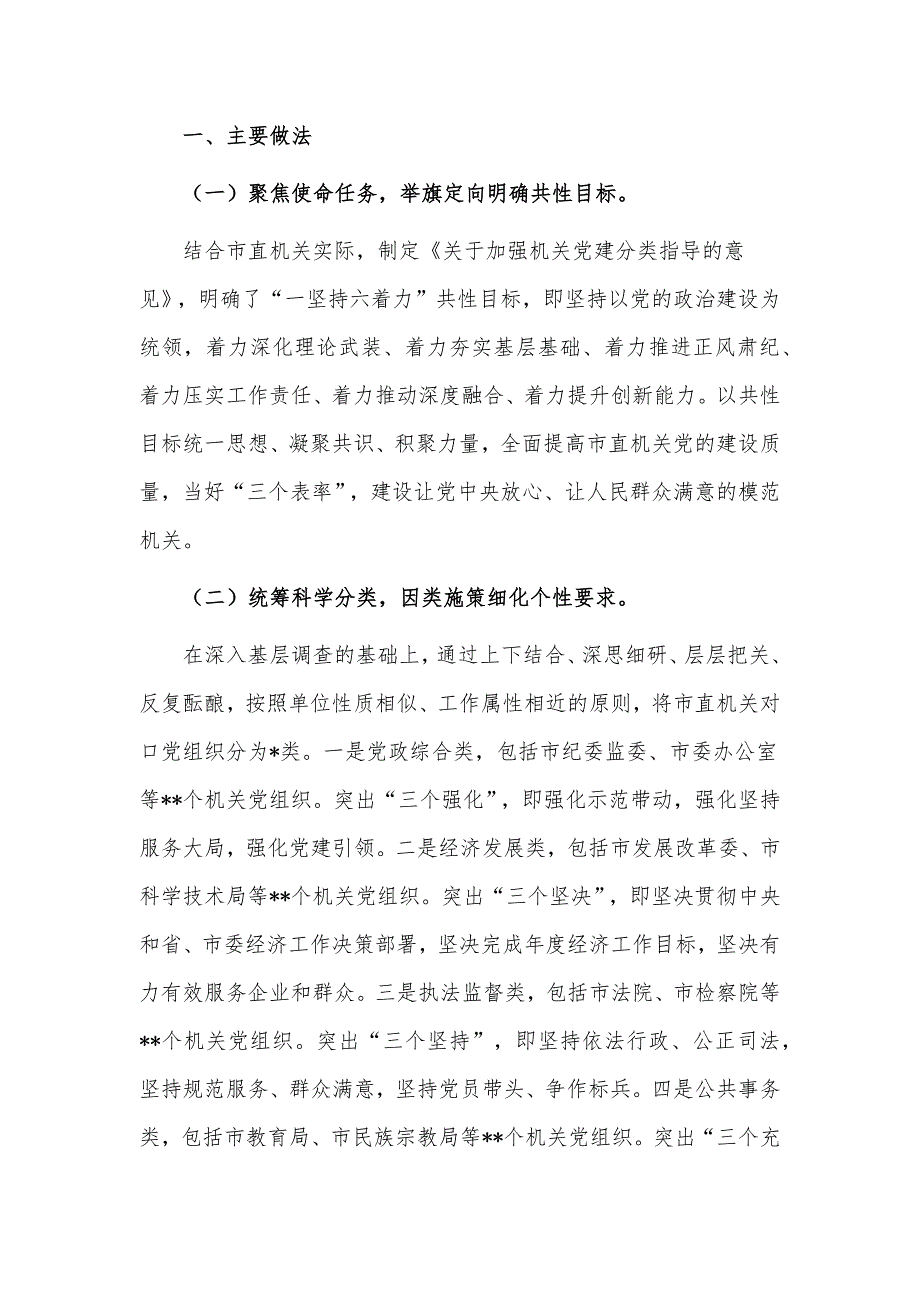 一、主要做法
（一）聚焦使命任务，举旗定向明确共性目标。
结合市直机关实际，制定《关于加强机关党建分类指导的意
见》，明确了“一坚持六着力”共性目标，即坚持以党的政治建设为
统领，着力深化理论武装、着力夯实基层基础、着力推进正风肃纪、
着力压实工作责任、着力推动深度融合、着力提升创新能力。以共性
目标统一思想、凝聚共识、积聚力量，全面提高市直机关党的建设质
量，当好“三个表率”，建设让党中央放心、让人民群众满意的模范
机关。
（二）统筹科学分类，因类施策细化个性要求。
在深入基层调查的基础上，通过上下结合、深思细研、层层把关、
反复酝酿，按照单位性质相似、工作属性相近的原则，将市直机关对
口党组织分为*类。一是党政综合类，包括市纪委监委、市委办公室
等**个机关党组织。突出“三个强化”，即强化示范带动，强化坚持
服务大局，强化党建引领。二是经济发展类，包括市发展改革委、市
科学技术局等**个机关党组织。突出“三个坚决”，即坚决贯彻中央
和省、市委经济工作决策部署，坚决完成年度经济工作目标，坚决有
力有效服务企业和群众。三是执法监督类，包括市法院、市检察院等
**个机关党组织。突出“三个坚持”，即坚持依法行政、公正司法，
坚持规范服务、群众满意，坚持党员带头、争作标兵。四是公共事务
类，包括市教育局、市民族宗教局等**个机关党组织。突出“三个充